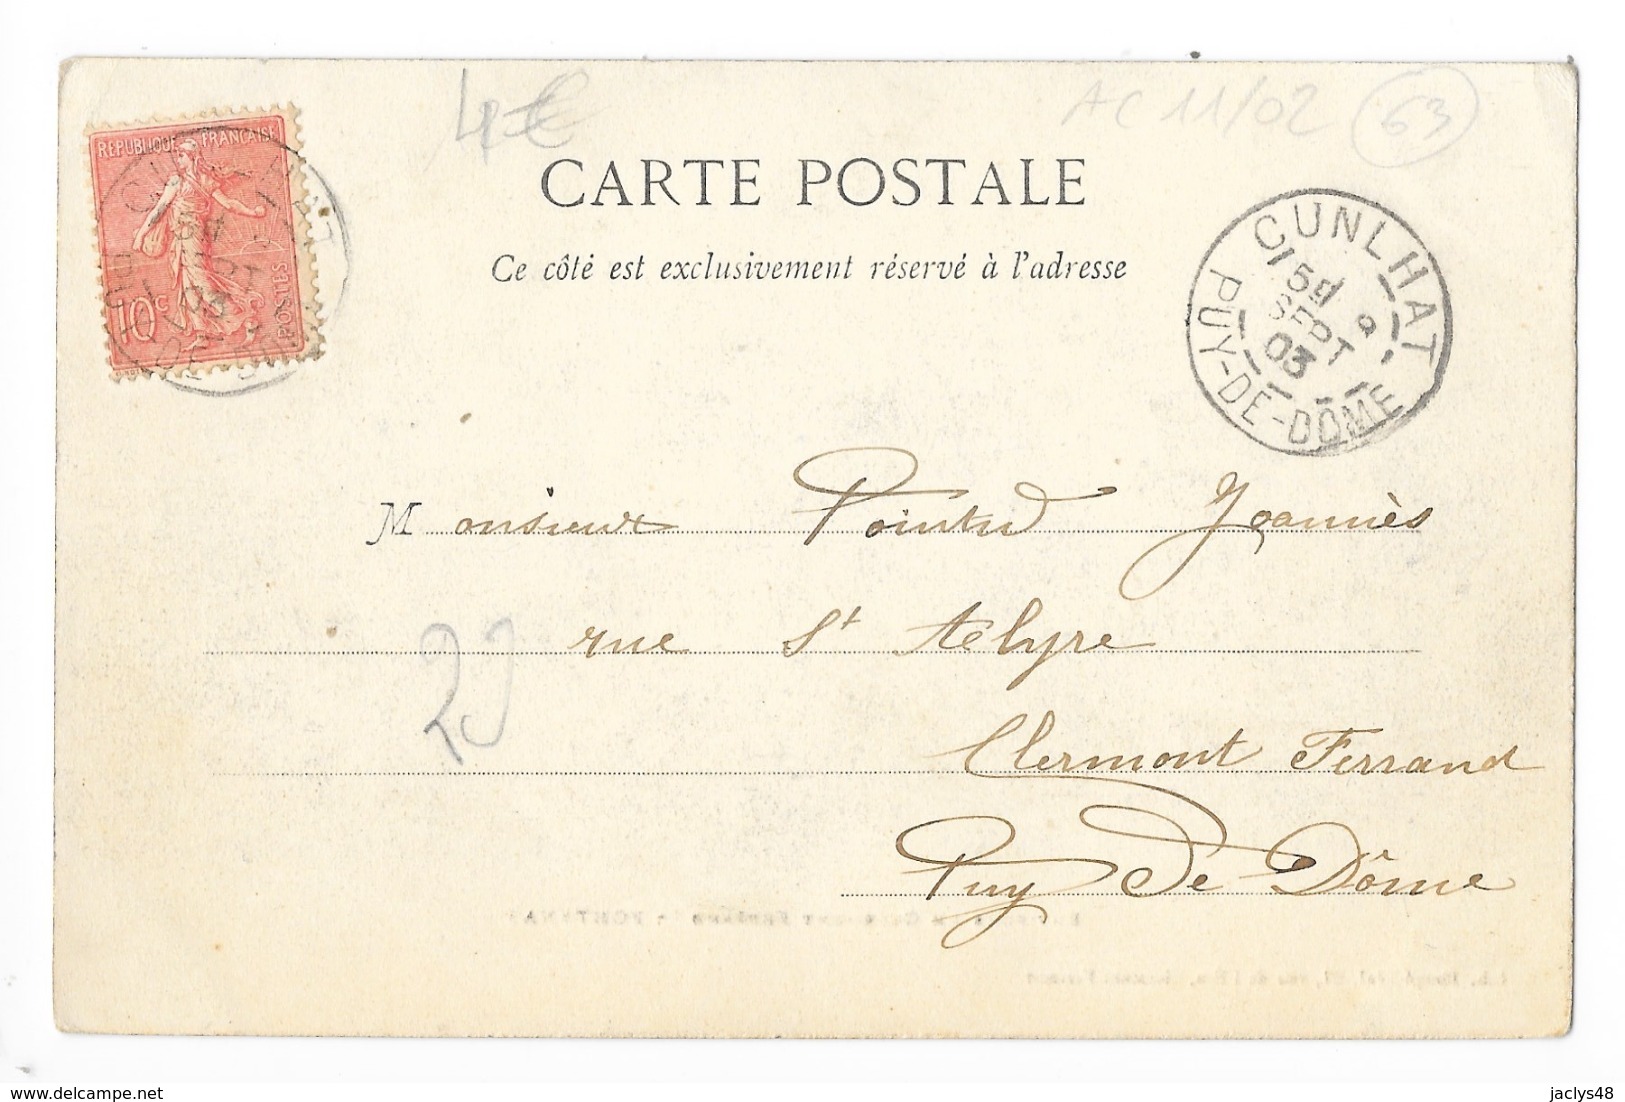 4€
AC 11/02 63
REPUBLIQUE FRANÇAISE
10c
POSTES
CARTE POSTALE
Ce côté est exclusivement réservé à l'adresse
CUNLHAT
5
SEPT
03
PUY-DE-DÔME
Monsieur Pointu Joannès
rue St Alyre
Clermont Ferrand
Puy de Dôme
jaclys48